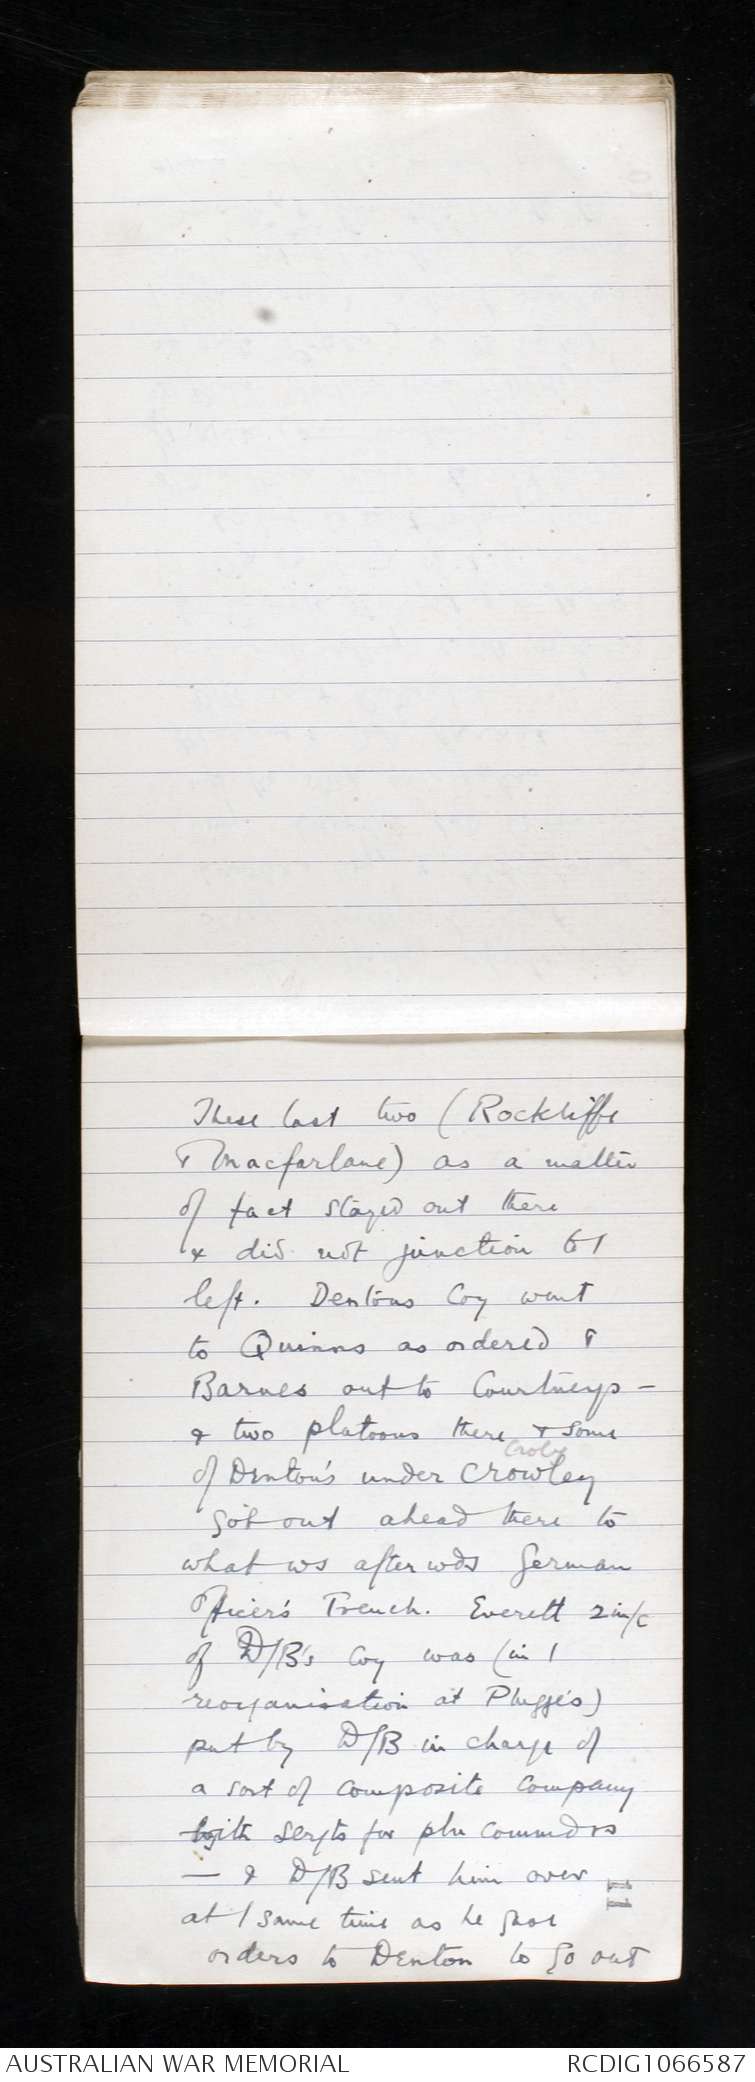 These last two (Rockliffe
& Macfarlane) as a matter
of fact stayed out there
& did not junction to /
left. Dentons Coy went
to Quinns as ordered &
Barnes out to Courtneys -
& two platoons there & some
Croly
of Denton's under Crowley
got out ahead there to
what ws afterwds German
Officer's Trench. Everett 2 in/c
of D/B's Coy was (in /
reorganisation at Plugge's)
put by D/B in charge of
a sort of composite company
with sergts for pln commdrs
— & D/B sent him over
at / same time as he gave
orders to Denton to go out
AUSTRALIAN WAR MEMORIAL
RCDIG1066587